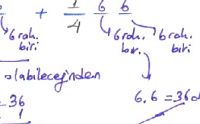 + 1/4 6 6
6 rak. 6 rak. 6 rak.
biri biri biri
olabileceğinden
= 36 6.6 = 36
1